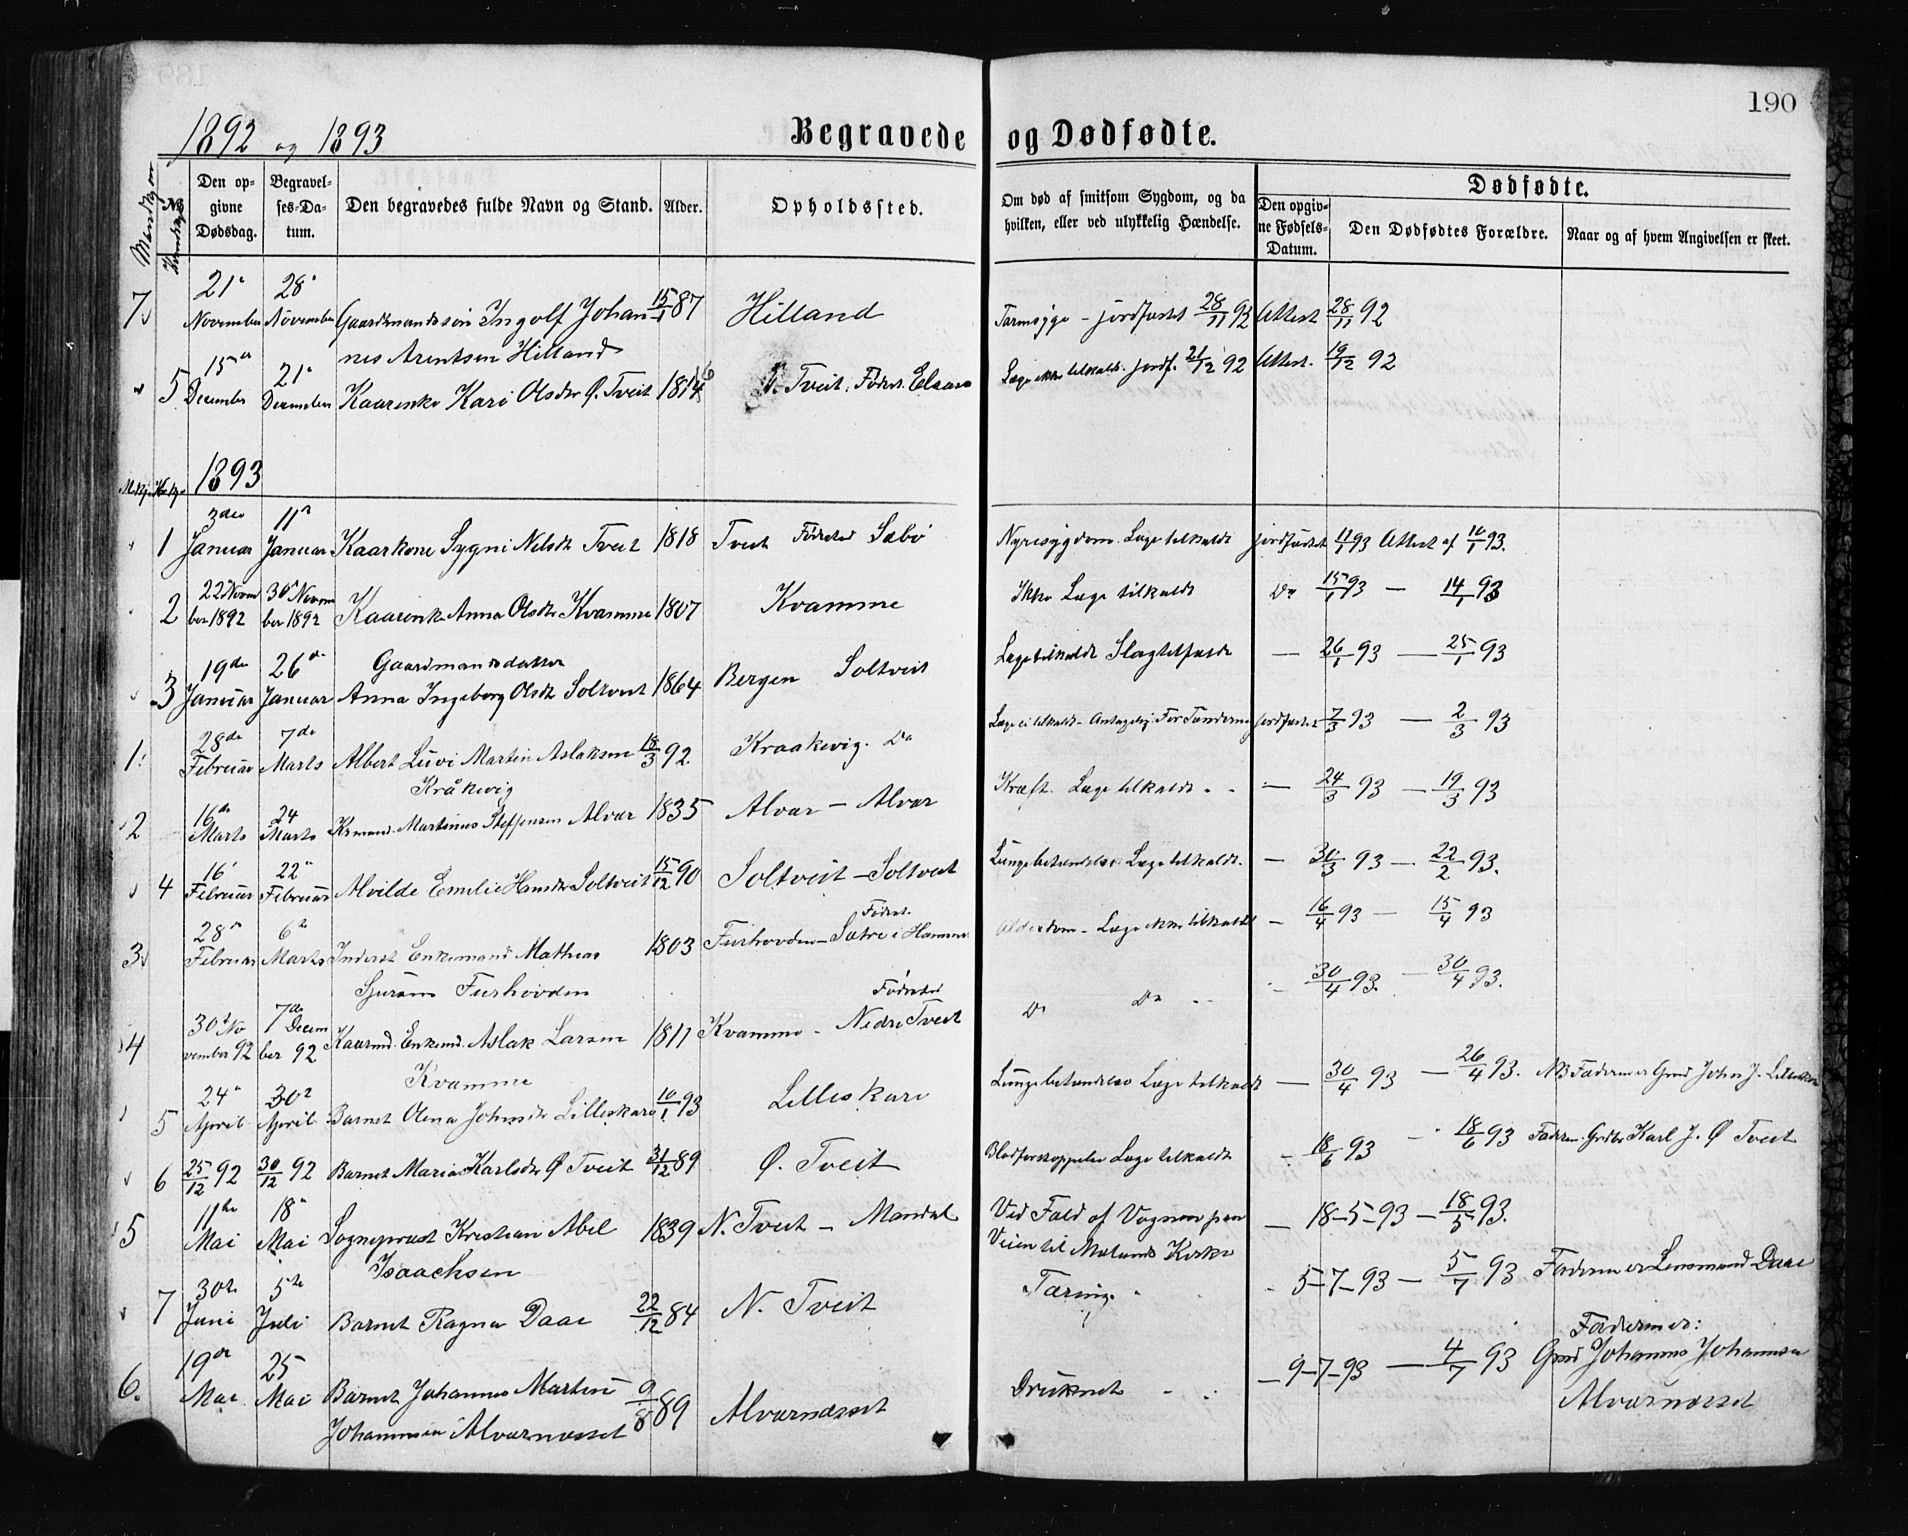 190
1892 og 1893
Begravede og Dødfødte.
Mandkjøn
No
Kvindekj.
Den op-
givne
Dødsdag.
Begravel-
ses-Da-
tum.
Den begravedes fulde Navn og Stand.
Alder.
Opholdssted.
Om død af smitsom Sygdom, og da
hvilken, eller ved ulykkelig Hændelse.
Dødfødte.
Den opgiv-
ne Fødsels-
Datum.
Den Dødfødtes Forældre.
Naar og af hvem Angivelsen er skeet.
7 21de November 28de November Gaardmandssøn Ingolf Johan 15/1 87 Hilland Tarmsyge - jordfæstet 28/11 92 Attest 28/11 92
nes Arentsen Hilland
5 15de December 21de December Kaarenke Kari Olsdtr Ø. Tveit 1816 Ø. Tveit. Fødest. Læge ikke tilkaldt. jordf. 21/12 92 Attest. 19/12 92
1893
Mkj. Kvkj.
1 3die Januar 11te Januar Kaarkone Sygni Nilsdtr Tveit 1818 Tveit Fødested Sæbø Nyresygdom. Læge tilkaldt jordfæstet 11/1 93 Attest af 10/1 93.
2 22 Novem ber 1892 30 Novem ber 1892 Kaarenke Anna Olsdtr Kvamme 1807 Kvamme Ikke Læge tilkaldt Do 15/1 93 — 14/1 93
3 19de Januar 26de Januar Gaardmandsdatter
Anna Ingeborg Olsdtr Soltveit 1864 Bergen Soltveit Læge tilkaldt Slagtilfælde — 26/1 93 — 25/1 93
1. 28de Februar 7de Marts Albert Luvi Martin Aslaksen 18/3 92 Kraakevig. Do Læge ei tilkaldt - Antagelig For Tænderne jordfæstet 7/3 93 — 2/3 93
Kråkevig
2 16de Marts 24 Marts Krmand. Martinus Steffensen Alvær 1835 Alvær — Alvær Kræft. Læge tilkaldt — 24/3 93 — 19/3 93
4 16 Februar 22de Februar Alvilde Emelie Hansdtr Soltveit 15/12 90 Soltveit — Soltveit Lungebetændelse Læge tilkaldt. — 30/3 93 — 22/2 93.
3 28de Februar 6te Marts Inderst Enkemand Mathias 1803 Furhovden — Fødest. Sætre i Hamme Alderdom - Læge ikke tilkaldt — 16/4 93 — 15/4 93
Sjursen Furhovden
4 30te No vember 92 7de Decem ber 92 Kaarmd. Enkemd. Aslak Larsen 1811 Kvamme - Fødested Nedre Tveit Do Do 30/4 93. — 30/4 93.
Kvamme
5 24de April 30te April Barnet Olena Johnsdtr Lilleskare 10/1 93 Lilleskare Lungebetændelse Læge tilkaldt — 30/4 93 — 26/4 93. NB Faderen er Grmd John J. Lilleskare
6 25/12 92 30/12 92 Barnet Maria Karlsdtr Ø Tveit 31/12 89 Ø. Tveit Blodforstoppelse Læge tilkaldt — 18/6 93 — 18/6 93 Faderen Grdbr Karl J. Ø Tveit
5 11te Mai 18de Mai Sogneprest Kristian Abel 1839 N. Tveit — Mandal Ved Fald af Vognen paa — 18-5-93 — 18/5 93.
Isaachsen Veien til Mælands Kirke
7 30te Juni 5te Juli Barnet Ragna Daae 22/12 84 N. Tveit Tæring 5-7-93 — 5/7 93 Faderen er Lensmand Daae
6. 19de Mai 25 Mai Barnet Johannes Martin 9/8 89 Alvernæsset Druknet — 9-7-93 — 4/7 93 Faderen er:
Grmd Johannes Johannesen
Johannesen Alvernæsset Alvernæsset